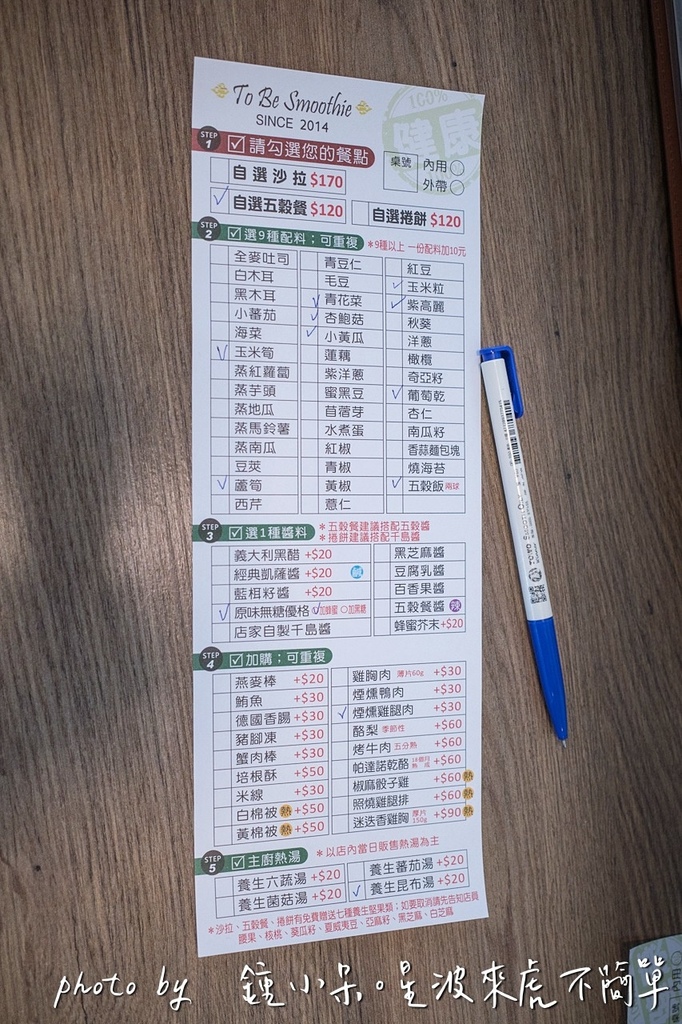 To Be Smoothie
SINCE 2014
100%
健康
STEP 1 請勾選您的餐點
桌號 內用
外帶
自選沙拉 $170
自選五穀餐 $120
自選捲餅 $120
STEP 2 選9種配料；可重複 *9種以上 一份配料加10元
全麥吐司
白木耳
黑木耳
小蕃茄
海菜
玉米筍
蒸紅蘿蔔
蒸芋頭
蒸地瓜
蒸馬鈴薯
蒸南瓜
豆莢
蘆筍
西芹
青豆仁
毛豆
青花菜
杏鮑菇
小黃瓜
蓮藕
紫洋蔥
蜜黑豆
苜蓿芽
水煮蛋
紅椒
青椒
黃椒
薏仁
紅豆
玉米粒
紫高麗
秋葵
洋蔥
橄欖
奇亞籽
葡萄乾
杏仁
南瓜籽
香蒜麵包塊
燒海苔
五穀飯 兩球
STEP 3 選1種醬料
*五穀餐建議搭配五穀醬
*捲餅建議搭配千島醬
義大利黑醋 +$20
經典凱薩醬 +$20
藍柑籽醬 +$20
原味無糖優格 加蜂蜜 加黑糖
店家自製千島醬
黑芝麻醬
豆腐乳醬
百香果醬
五穀餐醬 辣
蜂蜜芥末 +$20
STEP 4 加購；可重複
燕麥棒 +$20
鮪魚 +$30
德國香腸 +$30
豬腳凍 +$30
蟹肉棒 +$30
培根酥 +$50
米線 +$30
白棉被 熱 +$50
黃棉被 熱 +$50
雞胸肉 薄片60g +$30
煙燻鴨肉 +$30
煙燻雞腿肉 +$30
酪梨 季節性 +$60
烤牛肉 五分熟 +$60
帕達諾乾酪 +$60
椒麻骰子雞 +$60 熱
照燒雞腿排 +$60 熱
迷迭香雞胸 厚片150g +$90 熱
STEP 5 主廚熱湯 *以店內當日販售熱湯為主
養生六蔬湯 +$20
養生菌菇湯 +$20
養生蕃茄湯 +$20
養生昆布湯 +$20
*沙拉、五穀餐、捲餅有免費贈送七種養生堅果類；如要取消請先告知店員
腰果、核桃、葵瓜籽、夏威夷豆、亞麻籽、黑芝麻、白芝麻
桌號 內用
photo by 鐘小呆。星波來虎不簡單